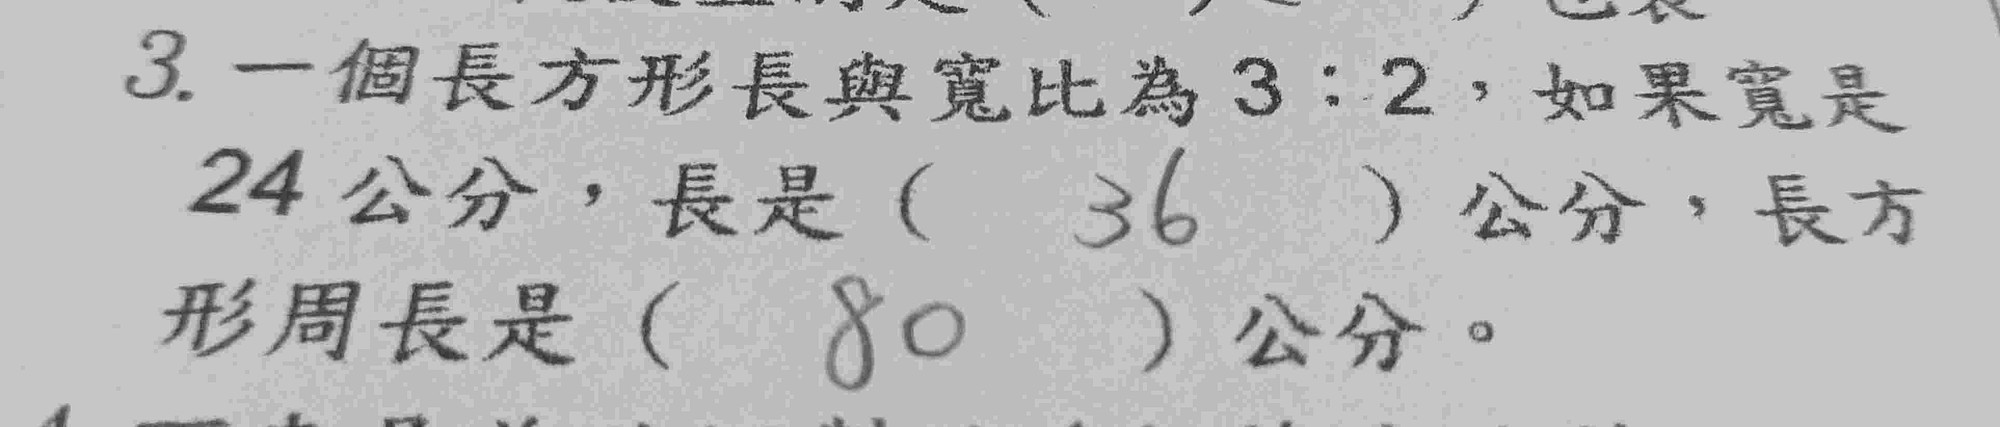 3. 一個長方形長與寬比為 3：2，如果寬是
24 公分，長是（ 36 ）公分，長方
形周長是（ 80 ）公分。